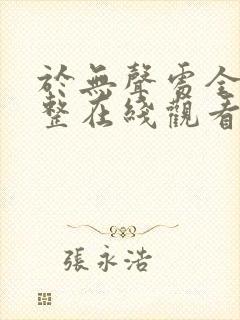 於無聲處全
整在綫觀看
張永浩